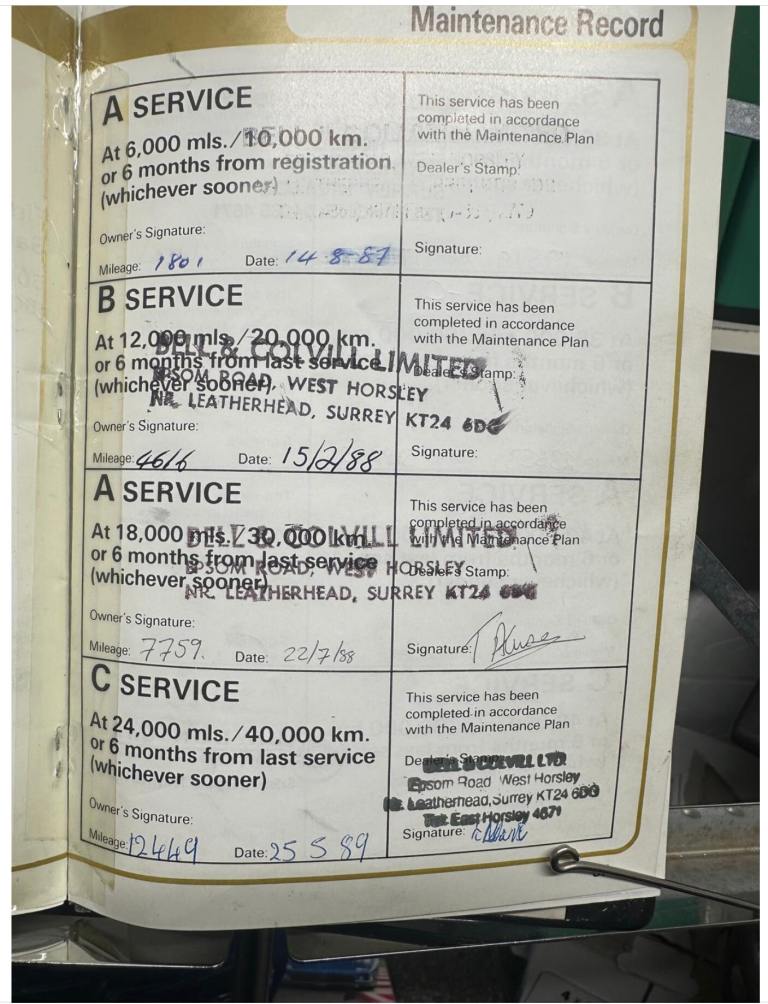 Maintenance Record
A SERVICE
At 6,000 mls./10,000 km.
or 6 months from registration
(whichever sooner)
Owner's Signature:
Mileage: 1801 Date: 14-8-87
This service has been
completed in accordance
with the Maintenance Plan
Dealer's Stamp:
Signature:
B SERVICE
At 12,000 mls./20,000 km.
or 6 months from last service
(whichever sooner)
Owner's Signature:
Mileage: 4616 Date: 15/2/88
This service has been
completed in accordance
with the Maintenance Plan
Dealer's Stamp:
BELL & COLVILL LIMITED
EPSOM ROAD, WEST HORSLEY
NR. LEATHERHEAD, SURREY KT24 6DG
Signature:
A SERVICE
At 18,000 mls./30,000 km.
or 6 months from last service
(whichever sooner)
Owner's Signature:
Mileage: 7759. Date: 22/7/88
This service has been
completed in accordance
with the Maintenance Plan
Dealer's Stamp:
BELL & COLVILL LIMITED
EPSOM ROAD, WEST HORSLEY
NR. LEATHERHEAD, SURREY KT24 6DG
Signature:
C SERVICE
At 24,000 mls./40,000 km.
or 6 months from last service
(whichever sooner)
Owner's Signature:
Mileage: 12449 Date: 25 5 89
This service has been
completed in accordance
with the Maintenance Plan
Dealer's Stamp:
BELL & COLVILL LTD.
Epsom Road West Horsley
Nr. Leatherhead, Surrey KT24 6DG
Tel: East Horsley 4671
Signature: